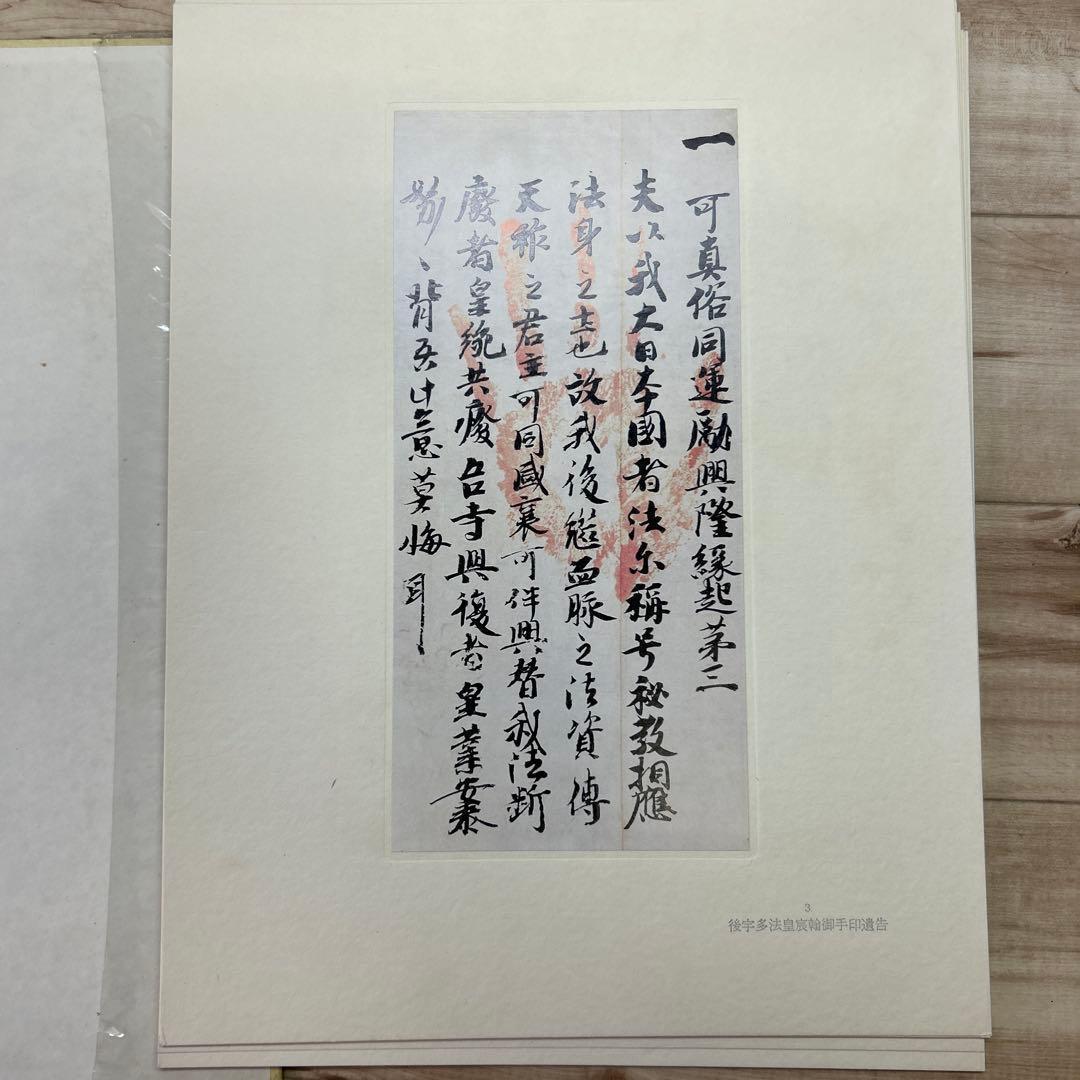 一 可真俗同運勵興隆緣起第三
夫以我大日本國者法尓稱号祕教相應
法身之土也故我後継血脉之法資傳
天祚之君主可同盛衰可伴興替我法断
廢者皇統共癈吾寺興復者皇業安泰
努〻背吾此意莫悔耳
3
後宇多法皇宸翰御手印遺告